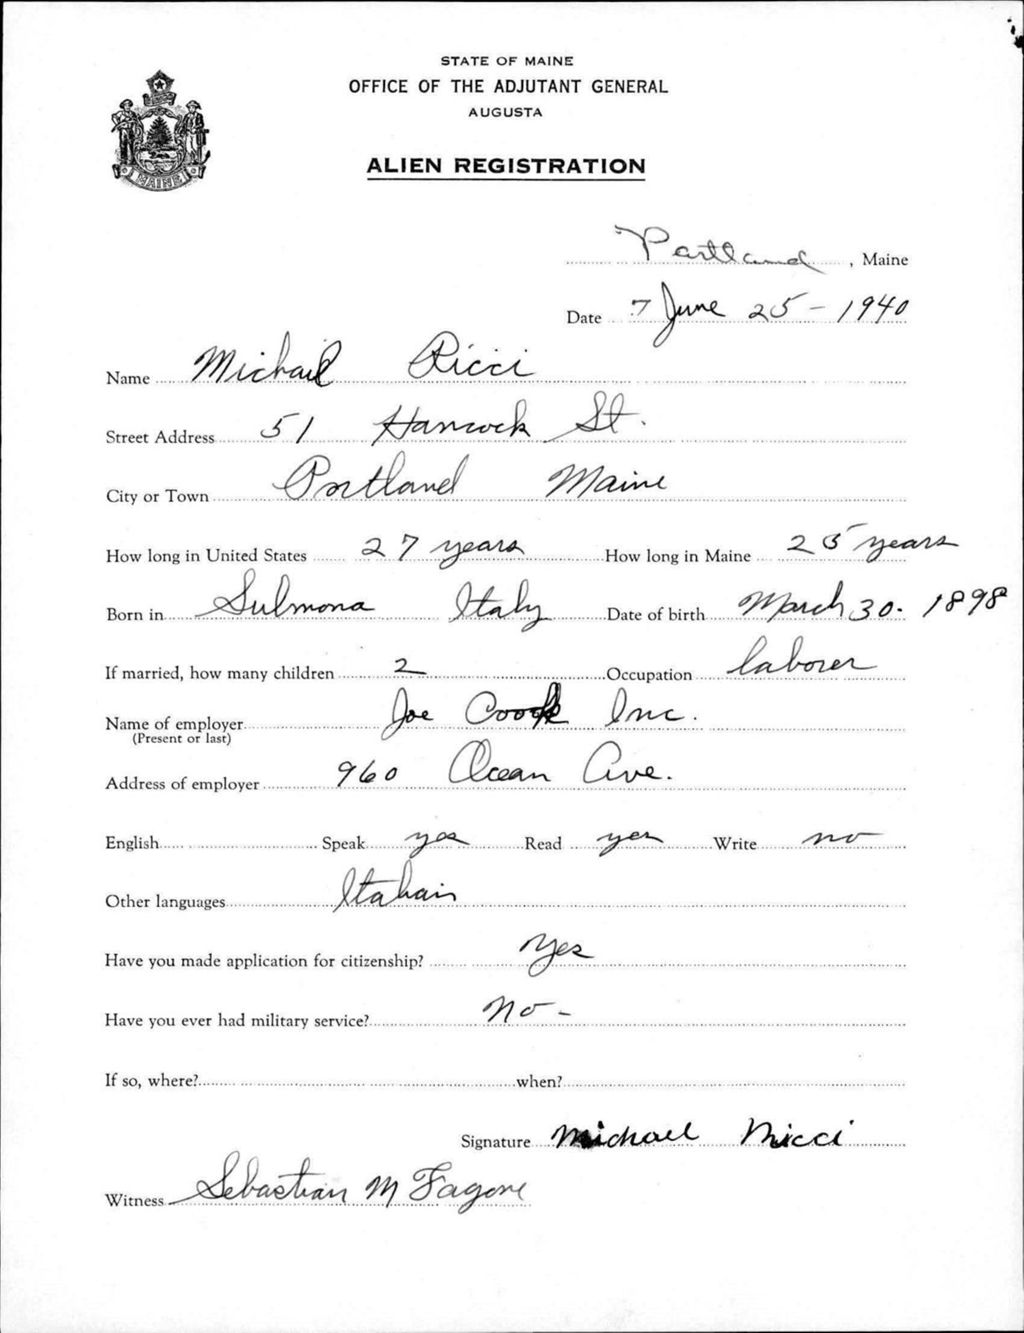 STATE OF MAINE
OFFICE OF THE ADJUTANT GENERAL
AUGUSTA
ALIEN REGISTRATION
MAINE
Portland, Maine
Date 7 June 25 - 1940
Name Michail Ricci
Street Address 51 Hancock St.
City or Town Portland Maine
How long in United States 27 years How long in Maine 25 years
Born in Sulmona Italy Date of birth March 30. 1898
If married, how many children 2 Occupation laborer
Name of employer Joe Inc.
(Present or last)
Address of employer 960 Ocean Ave.
English Speak yes Read yes Write no
Other languages Italiain
Have you made application for citizenship? Yes
Have you ever had military service? No -
If so, where? when?
Signature Michael Ricci
Witness Sebastian M Fagone